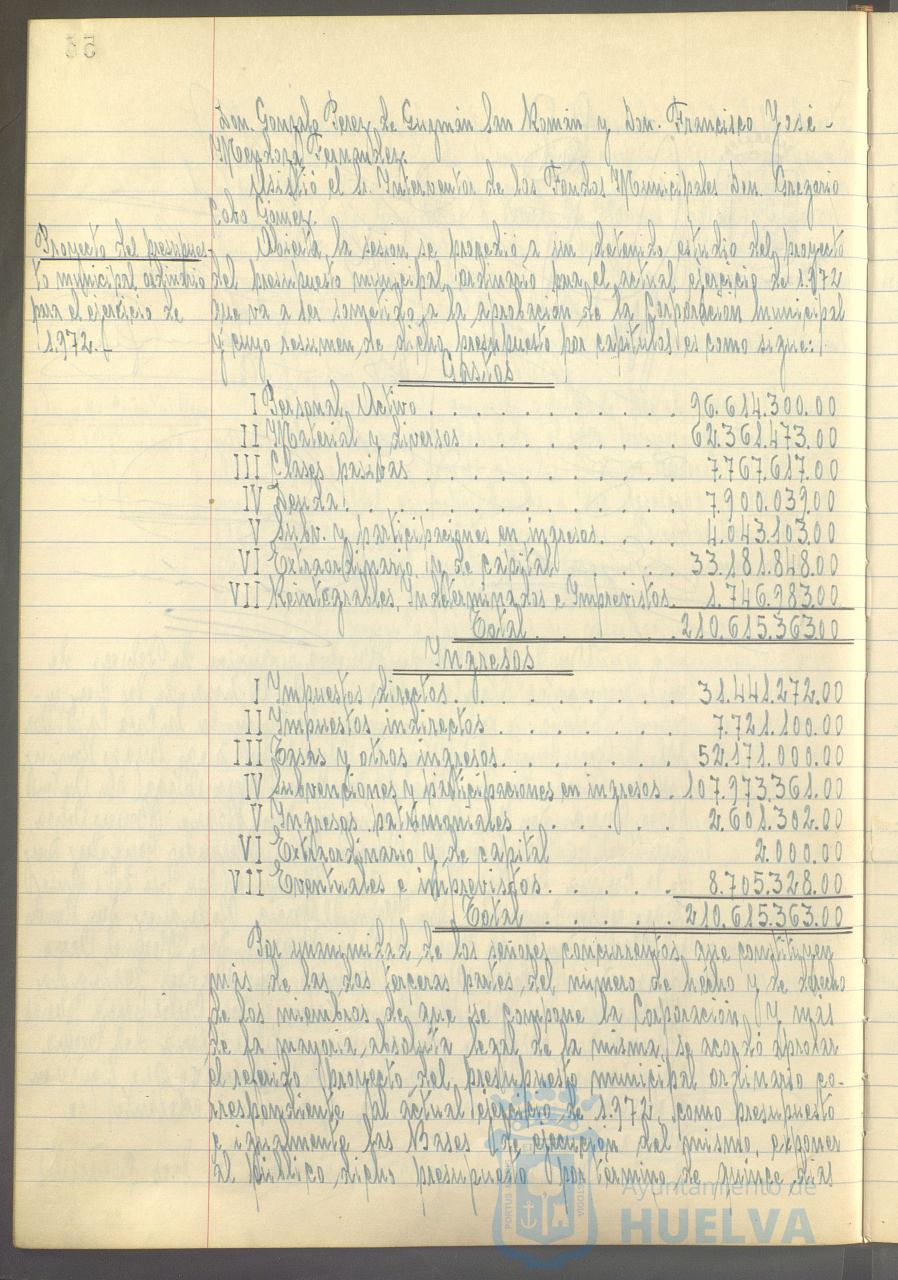 Don. Gonzalo Perez de Guzmán San Román y Don. Francisco José
Mendoza Fernandez.
Asistió el Sr. Interventor de los Fondos Municipales Don. Gregorio
Cobo Gómez.
Proyecto del presupues-
to municipal ordinario
para el ejercicio de
1.972.-
Abierta la sesion se procedió a un detenido estudio del proyecto
del presupuesto municipal ordinario para el actual ejercicio de 1.972
que va a ser sometido a la aprobación de la Corporación Municipal
y cuyo resumen de dicho presupuesto por capitulos es como sigue:
Gastos
I Personal Activo . . . . . . . . . . . 96.614.300.00
II Material y diversos . . . . . . . . 62.361.473.00
III Clases pasivas . . . . . . . . . . 7.767.617.00
IV Deuda . . . . . . . . . . . . 7.900.039.00
V Subv. y participaciones en ingresos. . . . . 4.043.103.00
VI Extraordinario y de capital . . . . 33.181.848.00
VII Reintegrables, Indeterminados e Imprevistos. 1.746.983.00
Total . . . . . . . 210.615.363.00
Ingresos
I Impuestos directos . . . . . . . . . 31.441.272.00
II Impuestos indirectos . . . . . . . 7.721.100.00
III Tasas y otros ingresos. . . . . . . 52.171.000.00
IV Subvenciones y participaciones en ingresos . 107.973.361.00
V Ingresos patrimoniales . . . . . . 2.601.302.00
VI Extraordinario y de capital 2.000.00
VII Eventuales e imprevistos. . . . . . 8.705.328.00
Total . . . . . . 210.615.363.00
Por unanimidad de los señores concurrentes, que constituyen
más de las dos terceras partes del número de hecho y de derecho
de los miembros de que se compone la Corporación (y más
de la mayoria absoluta legal de la misma) se acordó aprobar
el referido proyecto del presupuesto municipal ordinario co-
rrespondiente al actual ejercicio de 1.972, como presupuesto
e igualmente las Bases de ejecución del mismo, exponer
al público dicho presupuesto por término de quince dias
Ayuntamiento de
HUELVA